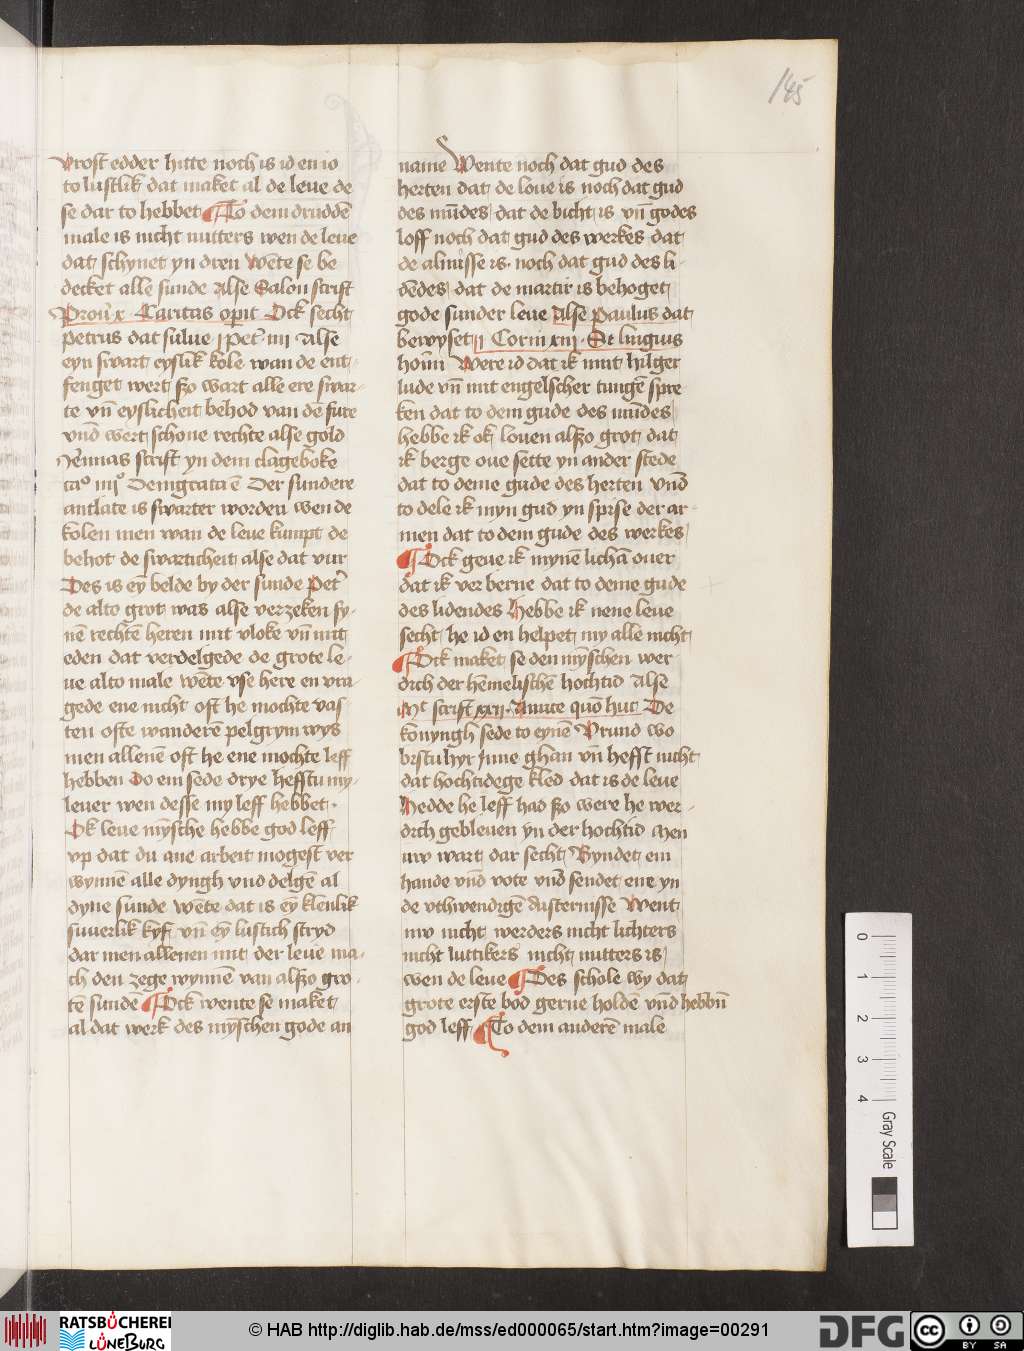 145
vrost edder hitte noch is id en io
to lustlik dat maket al de leue de
se dar to hebbet To dem drudde̅
male is nicht nutters wen de leue
dat schynet yn dren we̅te se be
decket alle sunde Alse Salon scrift
Prou̅ x Caritas op̲it Ock secht
petrus dat sulue j pet̓ iiij Alse
eyn swart eyslik kole wan de ent-
fenget wert szo wart alle ere swar-
te vn̅ eyslicheit behod van de̅ fure
vnd wert schone rechte alse gold
Je̅mias scrift yn dem clageboke
ca⁰ iiij⁰ Denigrata e̅ Der sundere
antlate is swarter worden wen de
kolen men wan de leue kumpt de
behot de swarticheit alse dat vur
Des is ey̅ belde by der sunde Pet̓
de alto grot was alse verzeken sy-
ne̅ rechte̅ heren mit vloke vn̅ mit
eden dat verdelgede de grote le-
ue alto male we̅te vse here en vra-
gede ene nicht oft he mochte vas-
ten ofte wandere̅ pelgrym wys
men allene̅ oft he ene mochte leff
hebben Do em sede drye hefstu my-
leuer wen desse my leff hebbet
Ok leue my̅sche hebbe god leff
vp dat du ane arbeit mogest ver
wynne̅ alle dyngh vnd delge̅ al
dyne sunde we̅te dat is ey̅ klenlik
suuerlik kyf vn̅ ey̅ lustich stryd
dar men allenen mit der leue ma-
ch den zege wynne̅ van alszo gro-
te̅ sunde Ock wente se maket
al dat werk des my̅schen gode an
name Wente noch dat gud des
herten dat de loue is noch dat gud
des mu̅des dat de bicht is vn̅ godes
loff noch dat gud des werkes dat
de almisse is noch dat gud des li
de̅des dat de martir is behoget
gode sunder leue Alse Paulus dat
bewyset ij Corin xiij Si linguis
hoi̅m Were id dat ik mit hilger
lude vn̅ mit engelscher tunge̅ spre
ken dat to dem gude des mu̅des
hebbe ik ok louen alszo grot dat
ik berge oue sette yn ander stede
dat to deme gude des herten vnd
to dele ik myn gud yn spise der ar-
men dat to dem gude des werkes
Ock geue ik myne̅ licha̅ ouer
dat ik ver berne dat to deme gude
des lidendes Hebbe ik nene leue
secht he id en helpet my alle nicht
Ock maket se den my̅schen wer
dich der he̅melische̅ hochtid Alse
Mt scrift xxij Amice quo̅ huc De
konyngh sede to eyne̅ Vrund wo
bistu hyr inne ghan vn̅ hefst nicht
dat hochtidege kled dat is de leue
Hedde he leff had szo were he wer-
dich gebleuen yn der hochtid Men
nw wart dar secht Byndet em
hande vnd vote vnd sendet ene yn
de vthwendige̅ dusternisse Went
nw nicht werders nicht lichters
nicht luttikers nicht nutters is
wen de leue Des schole wy dat
grote erste bod gerne holde̅ vnd hebbn̅
god leff To dem andere̅ male
0
1
2
3
4
Gray Scale
RATSBÜCHEREI
LÜNEBURG
© HAB http://diglib.hab.de/mss/ed000065/start.htm?image=00291
DFG
cc
BY SA